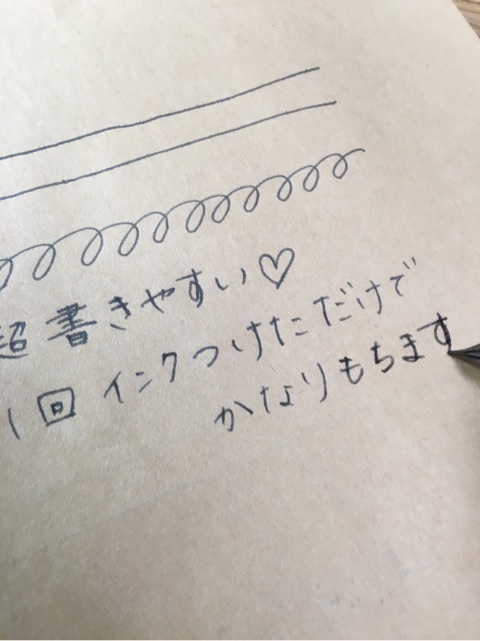 超書きやすい♡
1回インクつけただけで
かなりもちます